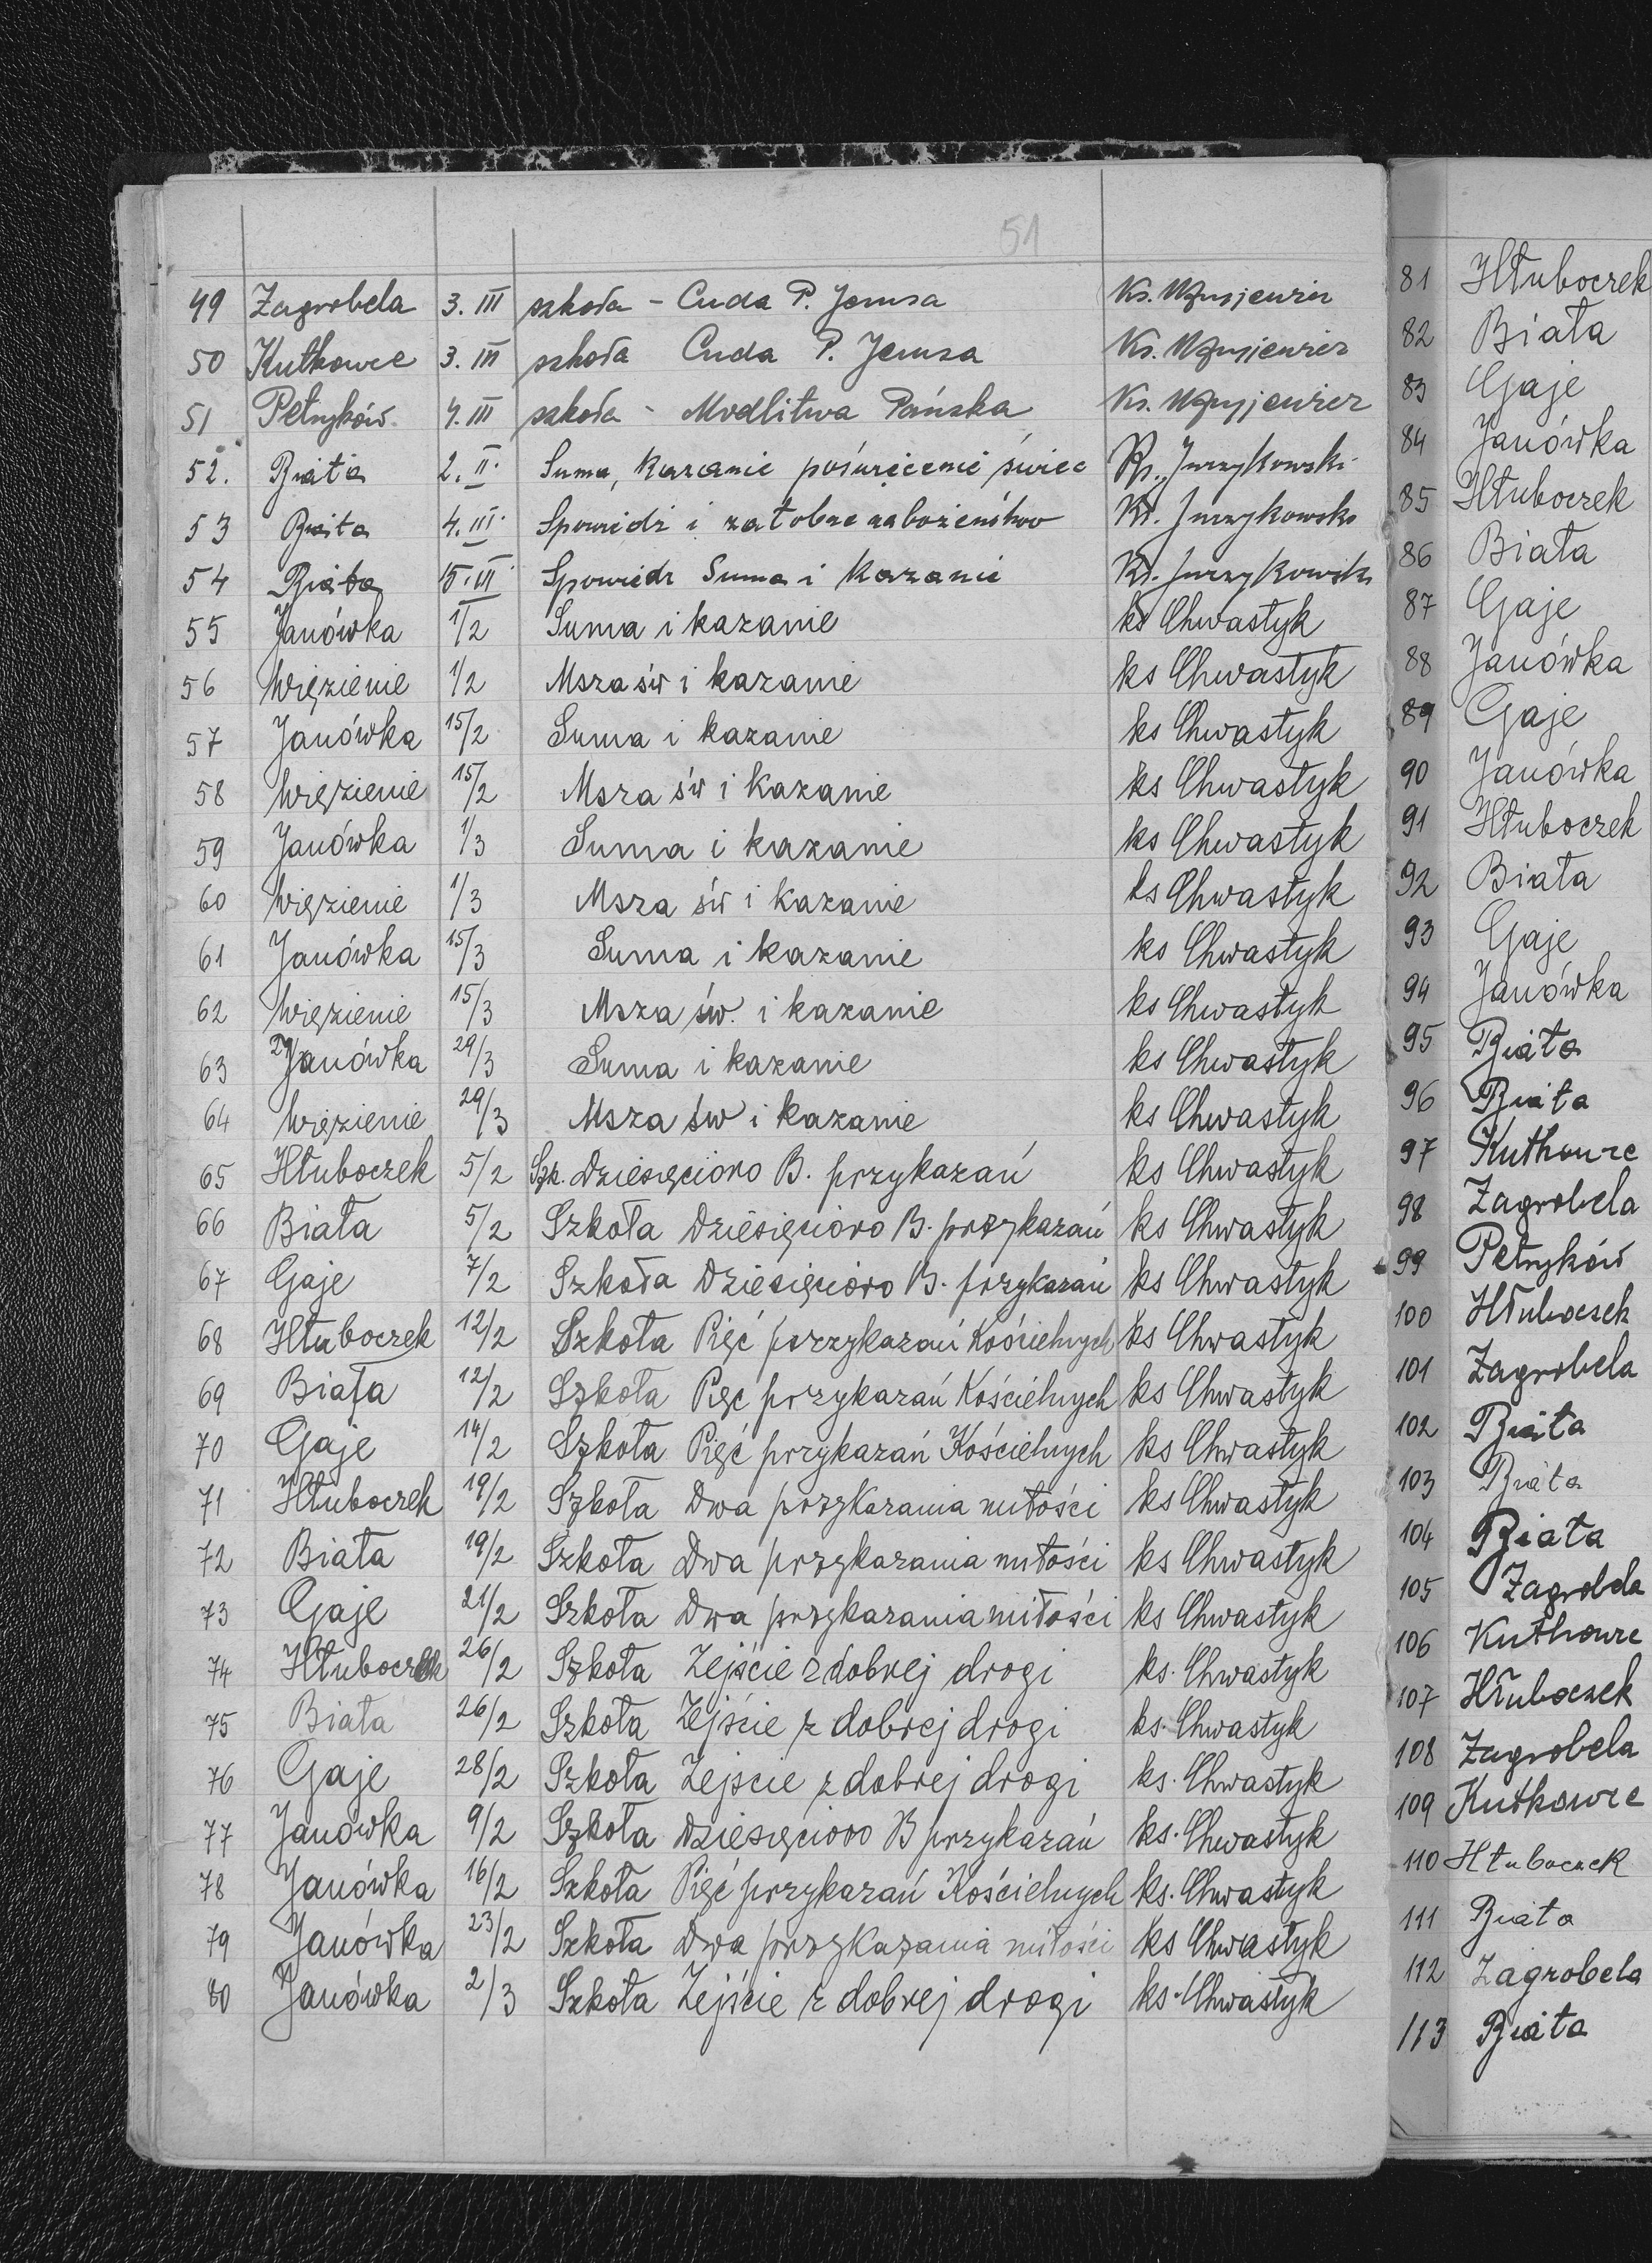 51
49 Zagrobela 3. III szkoła - Cuda P. Jezusa Ks.
50 Kutkowce 3. III szkoła Cuda P. Jezusa Ks.
51 Petryków 4. III szkoła - Modlitwa Pańska Ks.
52. Biała 2. II. Suma, Kazanie poświęcenie świec Ks. Jurzykowski
53 Biała 4. III. Spowiedź i żałobne nabożeństwo Ks. Jurzykowski
54 Biała 15. III. Spowiedź Suma i Kazanie Ks. Jurzykowski
55 Janówka 1/2 Suma i kazanie ks Chwastyk
56 Więzienie 1/2 Msza św i kazanie ks Chwastyk
57 Janówka 15/2 Suma i kazanie ks Chwastyk
58 Więzienie 15/2 Msza św i kazanie ks Chwastyk
59 Janówka 1/3 Suma i kazanie ks Chwastyk
60 Więzienie 1/3 Msza św i kazanie ks Chwastyk
61 Janówka 15/3 Suma i kazanie ks Chwastyk
62 Więzienie 15/3 Msza św. i kazanie ks Chwastyk
63 Janówka 29/3 Suma i kazanie ks Chwastyk
64 Więzienie 29/3 Msza św i kazanie ks Chwastyk
65 Hłuboczek 5/2 Szk. Dziesięcioro B. przykazań ks Chwastyk
66 Biała 5/2 Szkoła Dziesięcioro B. przykazań ks Chwastyk
67 Gaje 7/2 Szkoła Dziesięcioro B. przykazań ks Chwastyk
68 Hłuboczek 12/2 Szkoła Pięć przykazań Kościelnych ks Chwastyk
69 Biała 12/2 Szkoła Pięć przykazań Kościelnych ks Chwastyk
70 Gaje 14/2 Szkoła Pięć przykazań Kościelnych ks Chwastyk
71 Hłuboczek 19/2 Szkoła Dwa przykazania miłości ks Chwastyk
72 Biała 19/2 Szkoła Dwa przykazania miłości ks Chwastyk
73 Gaje 21/2 Szkoła Dwa przykazania miłości ks Chwastyk
74 Hłuboczek 26/2 Szkoła Zejście z dobrej drogi ks. Chwastyk
75 Biała 26/2 Szkoła Zejście z dobrej drogi ks. Chwastyk
76 Gaje 28/2 Szkoła Zejście z dobrej drogi ks. Chwastyk
77 Janówka 9/2 Szkoła Dziesięcioro B przykazań ks. Chwastyk
78 Janówka 16/2 Szkoła Pięć przykazań Kościelnych ks. Chwastyk
79 Janówka 23/2 Szkoła Dwa przykazania miłości ks Chwastyk
80 Janówka 2/3 Szkoła Zejście z dobrej drogi ks. Chwastyk
81 Hłuboczek
82 Biała
83 Gaje
84 Janówka
85 Hłuboczek
86 Biała
87 Gaje
88 Janówka
89 Gaje
90 Janówka
91 Hłuboczek
92 Biała
93 Gaje
94 Janówka
95 Biała
96 Biała
97 Kutkowce
98 Zagrobela
99 Petryków
100 Hłuboczek
101 Zagrobela
102 Biała
103 Biała
104 Biała
105 Zagrobela
106 Kutkowce
107 Hłuboczek
108 Zagrobela
109 Kutkowce
110 Hłuboczek
111 Biała
112 Zagrobela
113 Biała